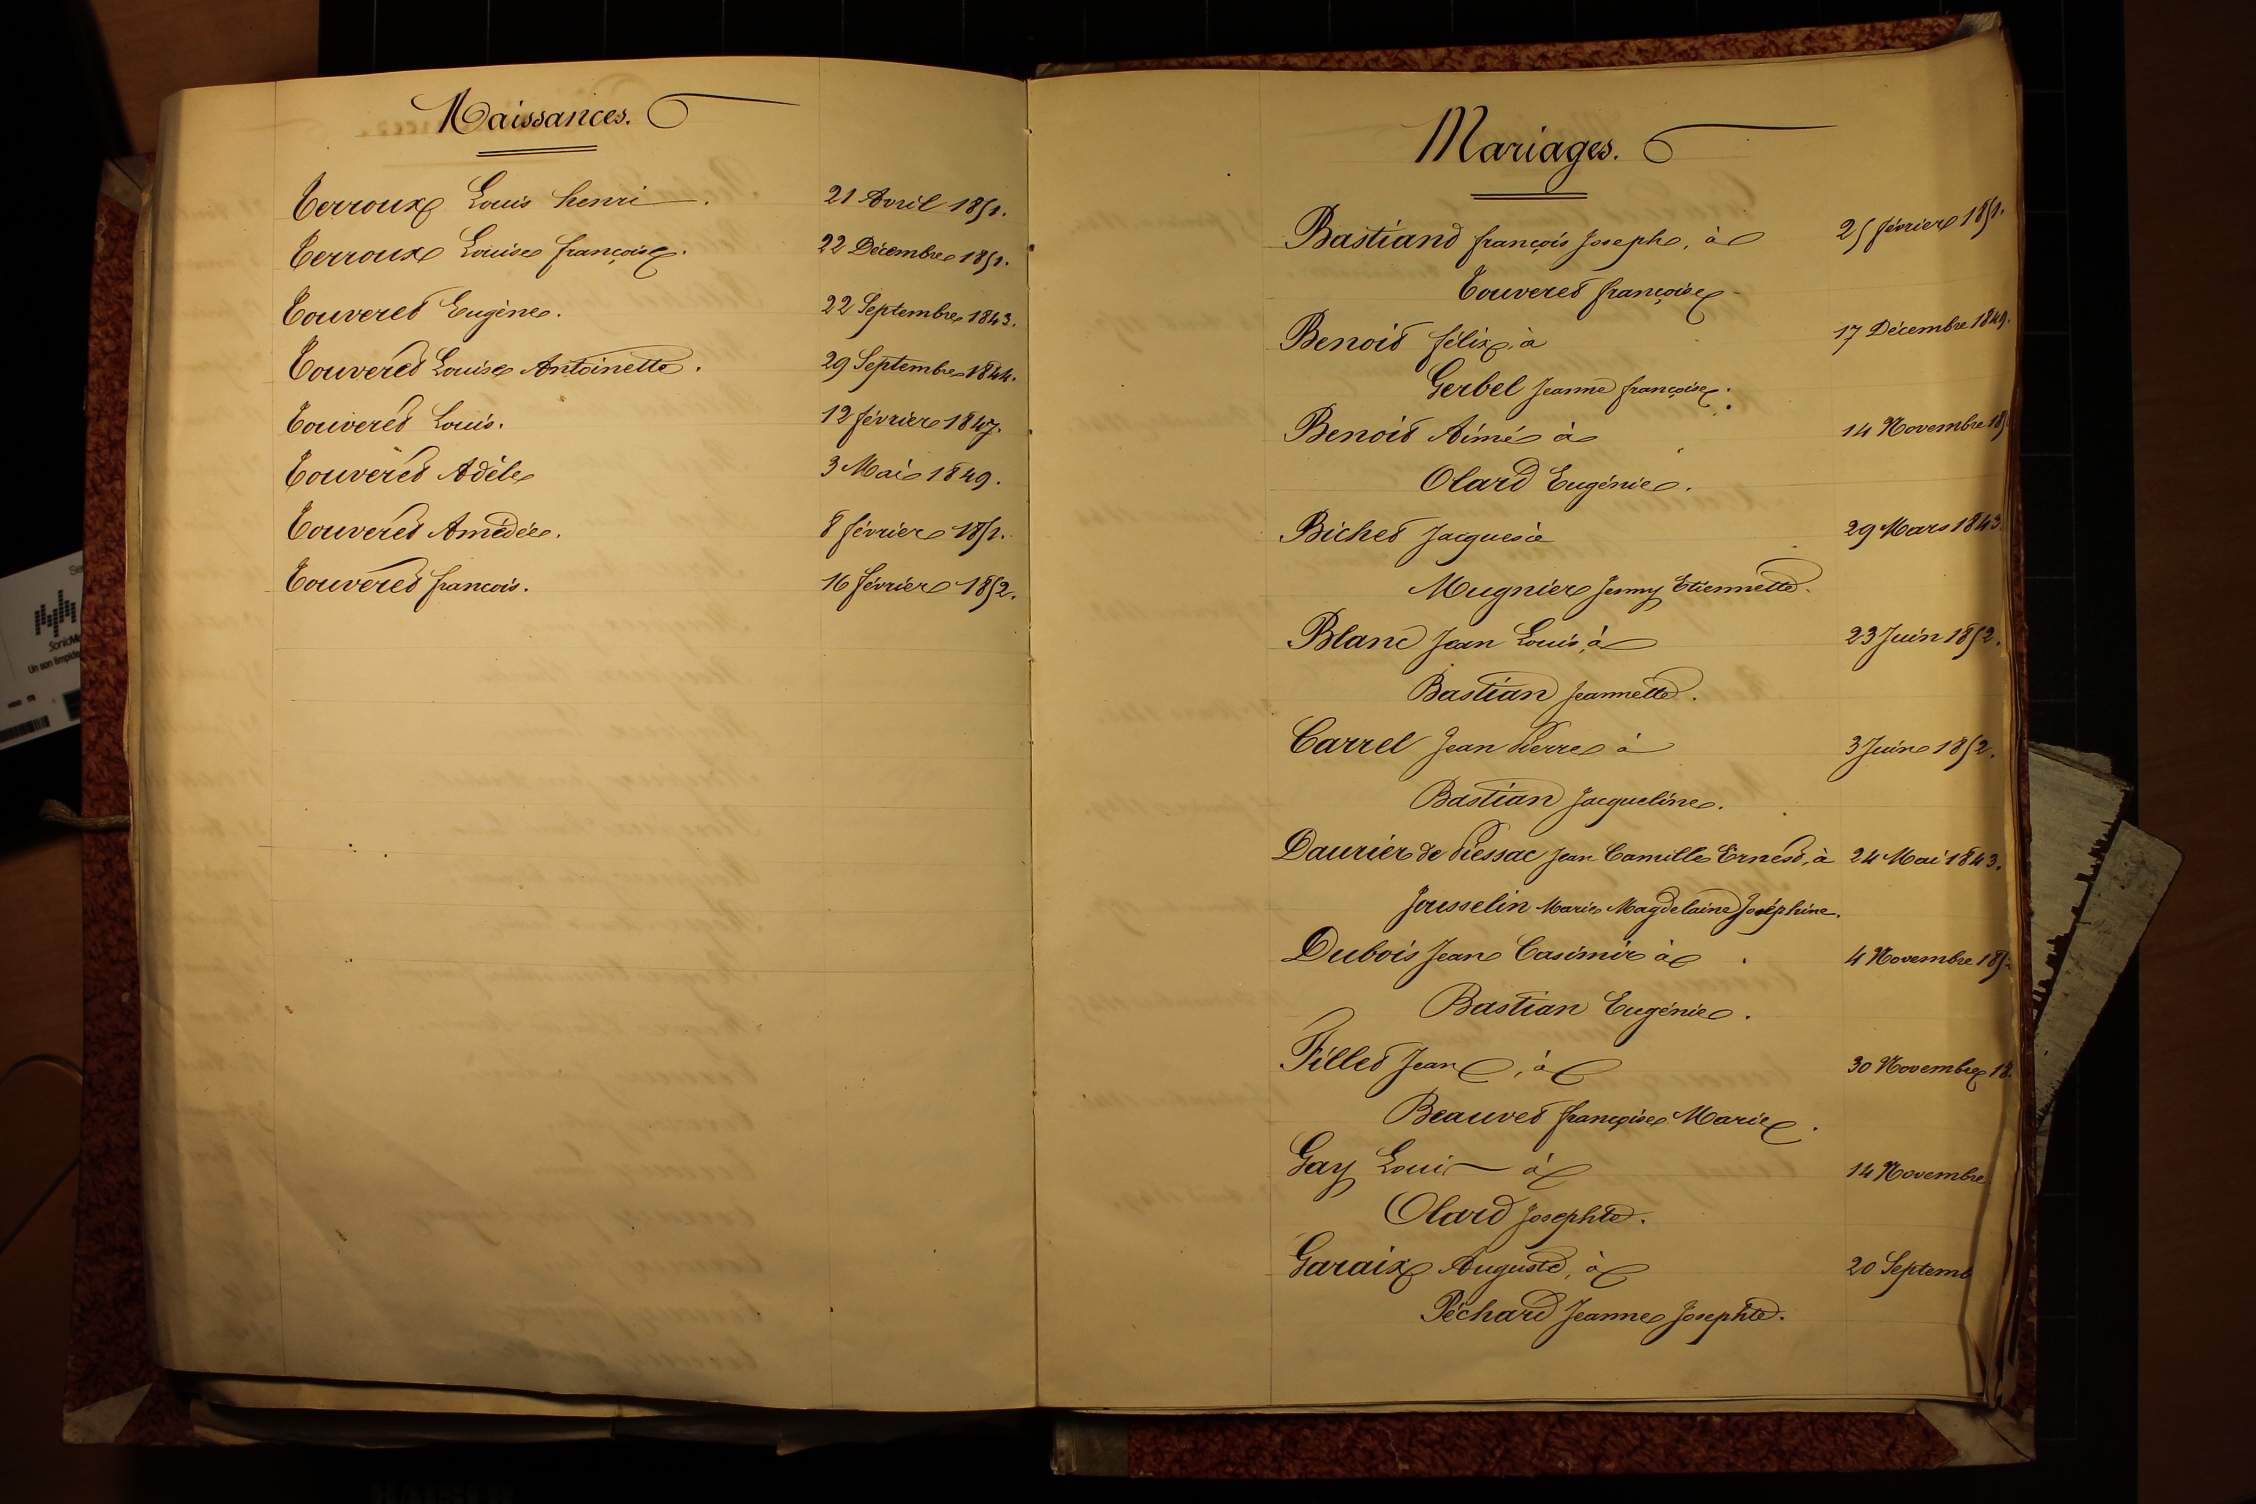 Naissances.
Terroux Louis henri. 21 Avril 1851.
Terroux Louise françoise. 22 Décembre 1851.
Touveret Eugène. 22 Septembre 1843.
Touveret Louise Antoinette. 29 Septembre 1844.
Touveret Louis. 12 février 1847.
Touveret Adèle 3 Mai 1849.
Touveret Amédée. 8 février 1851.
Touveret françois. 16 février 1852.
Mariages.
Bastiand françois Joseph, à 25 février 1851.
Touveret françoise
Benoit félix, à 17 Décembre 1849.
Gerbel Jeanne françoise.
Benoit Aimé à 14 Novembre 18
Olard Eugénie.
Bichet Jacques à 29 Mars 1843.
Mugnier Jenny Etiennette.
Blanc Jean Louis, à 23 Juin 1852.
Bastian Jeannette.
Carrel Jean Pierre à 3 Juin 1852.
Bastian Jacqueline.
Daurier de Piessac Jean Camille Ernest, à 24 Mai 1843.
Jousselin Marie Magdelaine Joséphine.
Dubois Jean Casimir à 4 Novembre 185
Bastian Eugénie.
Fillet Jean, à 30 Novembre 18
Beauvet françoise Marie.
Gay Louis à 14 Novembre
Olard Josephte.
Garaix Auguste, à 20 Septemb
Péchard Jeanne Josephte.